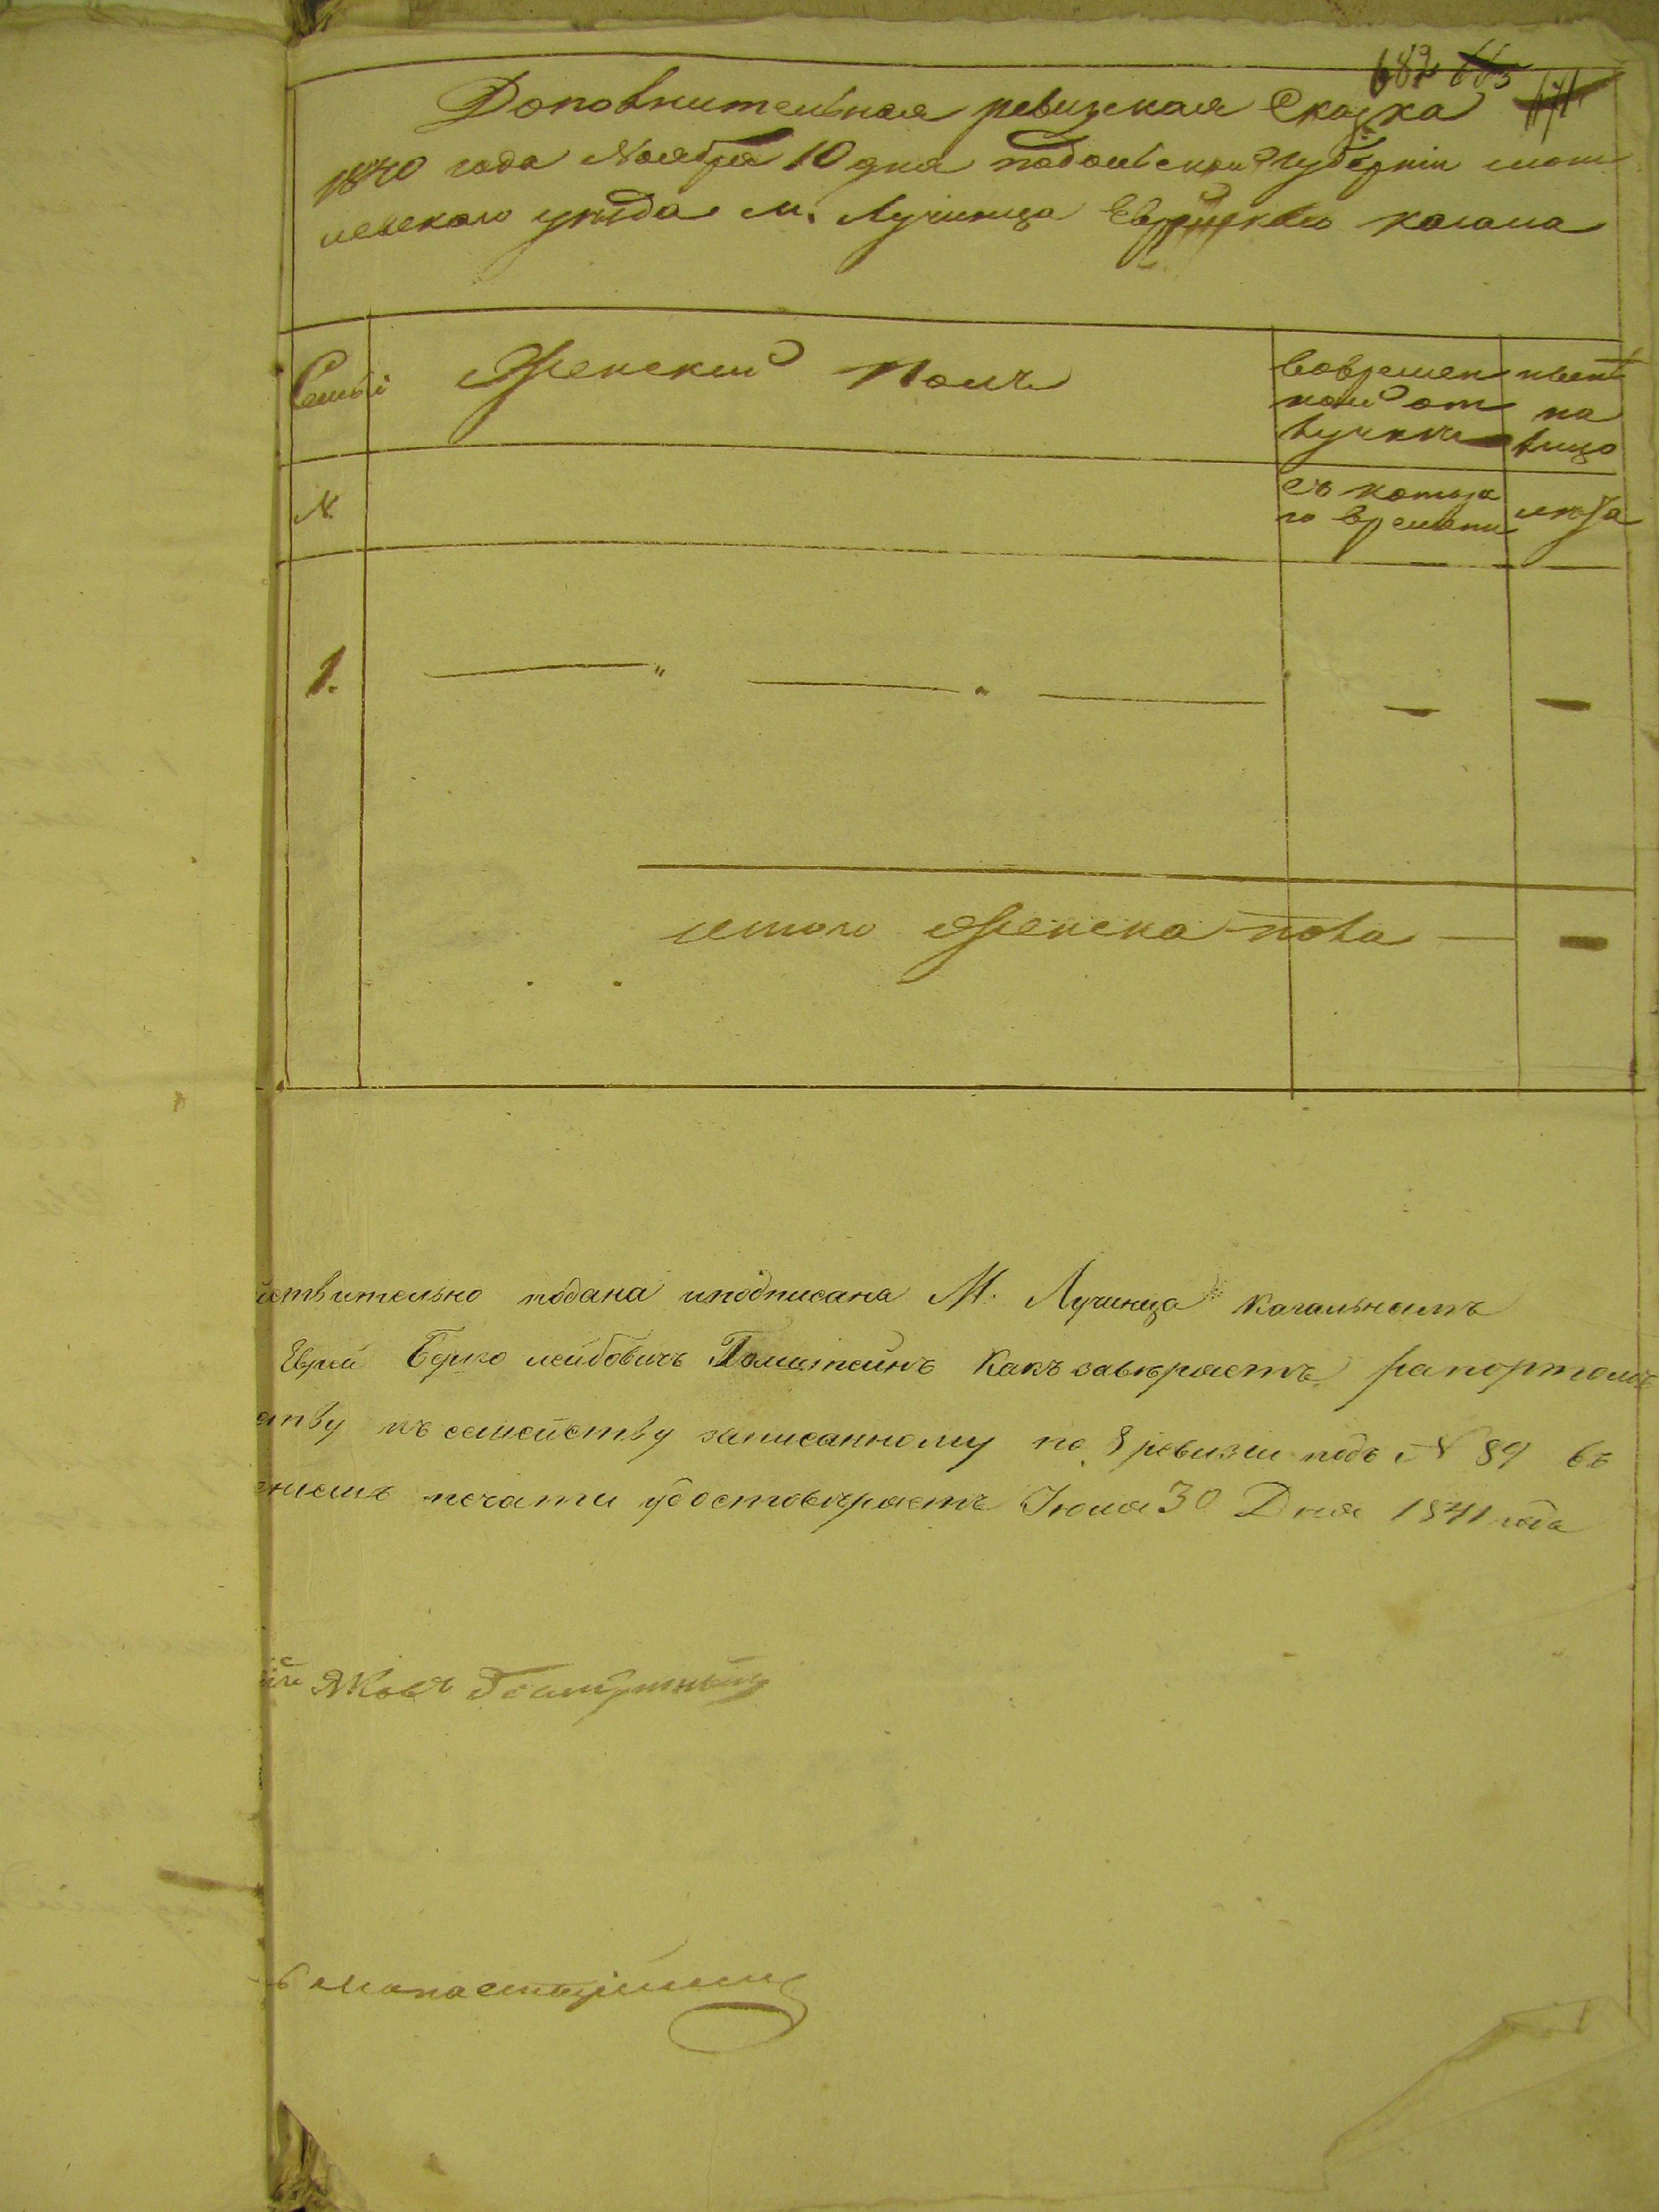 682 665
Дополнительная ревизская Сказка
1840 года Ноября 10 дня подольской Губерніи моги
левского уѣзда м. Лучинца Еврейского кагала
Семьи
Женский полъ
вовремен
ной от
лучки
ныне
на
лицо
№
съ котора
го времени
лѣта
1. — " — " — — —
итого женска пола — —
йствительно подана иподписана М. Лучинца Кагальнымъ
Еврей Берко лейбовичъ Гольштейнъ Какъ завѣряетъ рапортомъ
ству къ семейству записанному по 8 ревизіи подъ № 89 въ
ниемъ печати удостовѣряетъ Іюля 30 Дня 1841 года
Яковъ